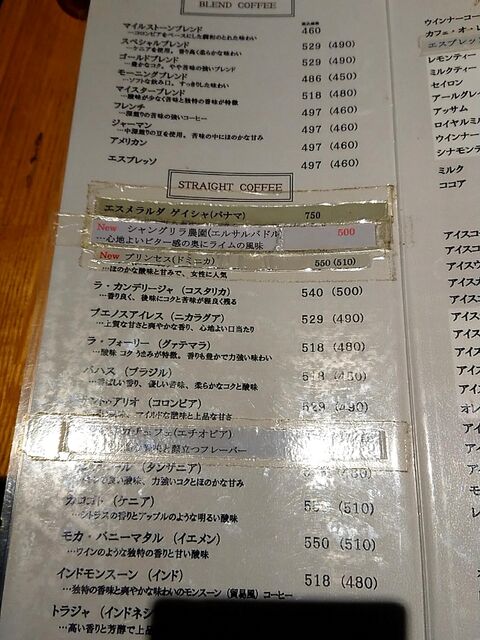 BLEND COFFEE
マイルストーンブレンド 460
…コロンビアをベースにした調和のとれた味わい
スペシャルブレンド 529 (490)
…ケニアを使用。香り高く柔らかな味わい
ゴールドブレンド 529 (490)
…豊かなコク。やや苦味の強いブレンド
モーニングブレンド 486 (450)
…ソフトな飲み口。すっきりした味わい
マイスターブレンド 518 (480)
…酸味が少なく苦味と独特の香味が特徴
フレンチ 497 (460)
…深煎りの苦味の強いコーヒー
ジャーマン 497 (460)
…中深煎りの豆を使用。苦味の中にほのかな甘み
アメリカン 497 (460)
エスプレッソ 497 (460)
STRAIGHT COFFEE
エスメラルダ ゲイシャ(パナマ) 750
New シャングリラ農園(エルサルバドル 500
…心地よいビター感の奥にライムの風味
New プリンセス(ドミニカ) 550(510)
…ほのかな酸味と甘みで、女性に人気
ラ・カンデリージャ (コスタリカ) 540 (500)
…香り良く、後味にコクと苦味が程良く残る
ブエノスアイレス (ニカラグア) 529 (490)
…上質な甘さと爽やかな香り、心地よい口当たり
ラ・フォーリー (グァテマラ) 518 (480)
…酸味 コク うまみが特徴。香りも豊かで力強い味わい
バハス (ブラジル)
香ばしい香り、優しい苦味、柔らかなコクと酸味
アリオ (コロンビア) (490)
マイルドな酸味と上品な甘さ
(エチオピア)
際立つフレーバー
(タンザニア)
酸味、力強いコクとほのかな甘み
(ケニア) (510)
シトラスの香りとアップルのような明るい酸味
モカ・バニーマタル (イエメン) 550 (510)
…ワインのような独特の香りと甘い酸味
インドモンスーン (インド) 518 (480)
…独特の香味と爽やかな味わいのモンスーン (貿易風) コーヒー
トラジャ (インドネシ
…高い香りと芳醇で上
ウインナーコー
カフェ・オ・レ
エスプレッソ
レモンティー
ミルクティー
セイロン
アールグレイ
アッサム
ロイヤルミル
ウインナー
シナモンテ
ミルク
ココア
アイスコ
アイスコ
アイスウ
アイスカ
アイス
アイス
アイス
アイス
アイス
アイス
オレン